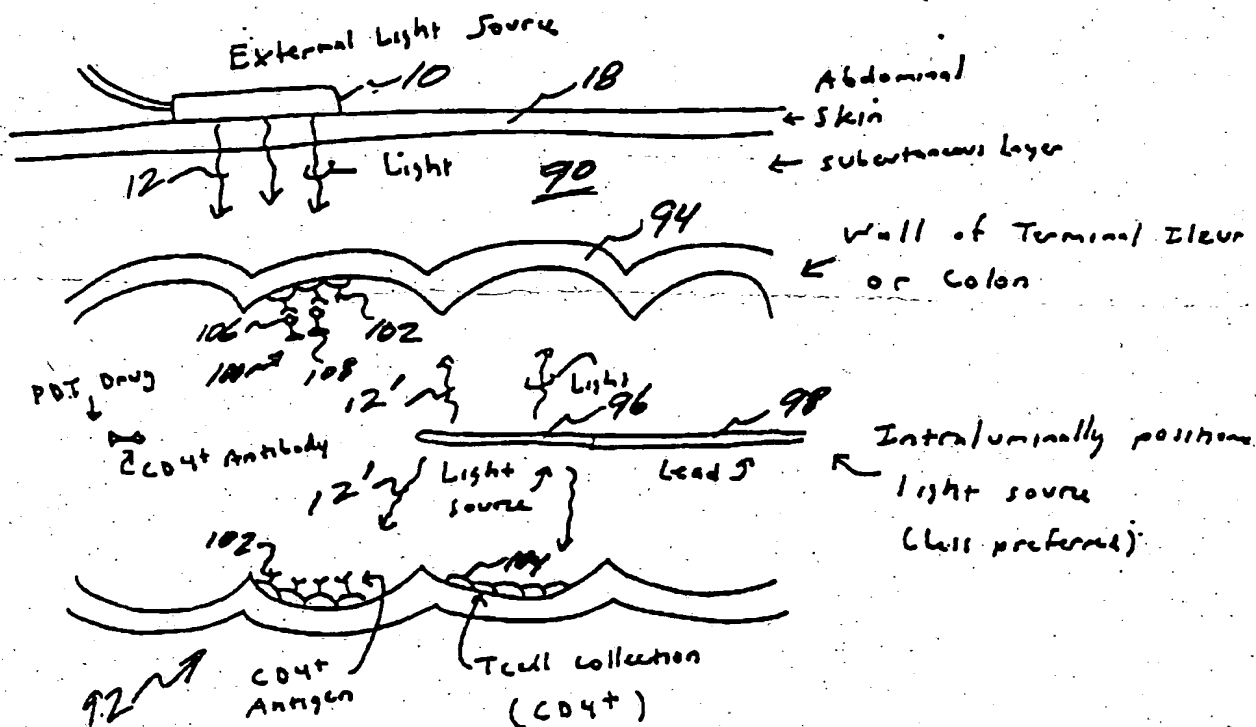 External Light Source
10
18
Abdominal
Skin
Subcutaneous Layer
12
Light
90
94
Wall of Terminal Ileum
or Colon
106
102
100
108
PDT Drug
CD4+ Antibody
12'
Light
96
98
Intraluminally positione
light source
(less preferred)
12'
Light
source
Lead
102
104
92
CD4+
Antigen
T cell collection
(CD4+)